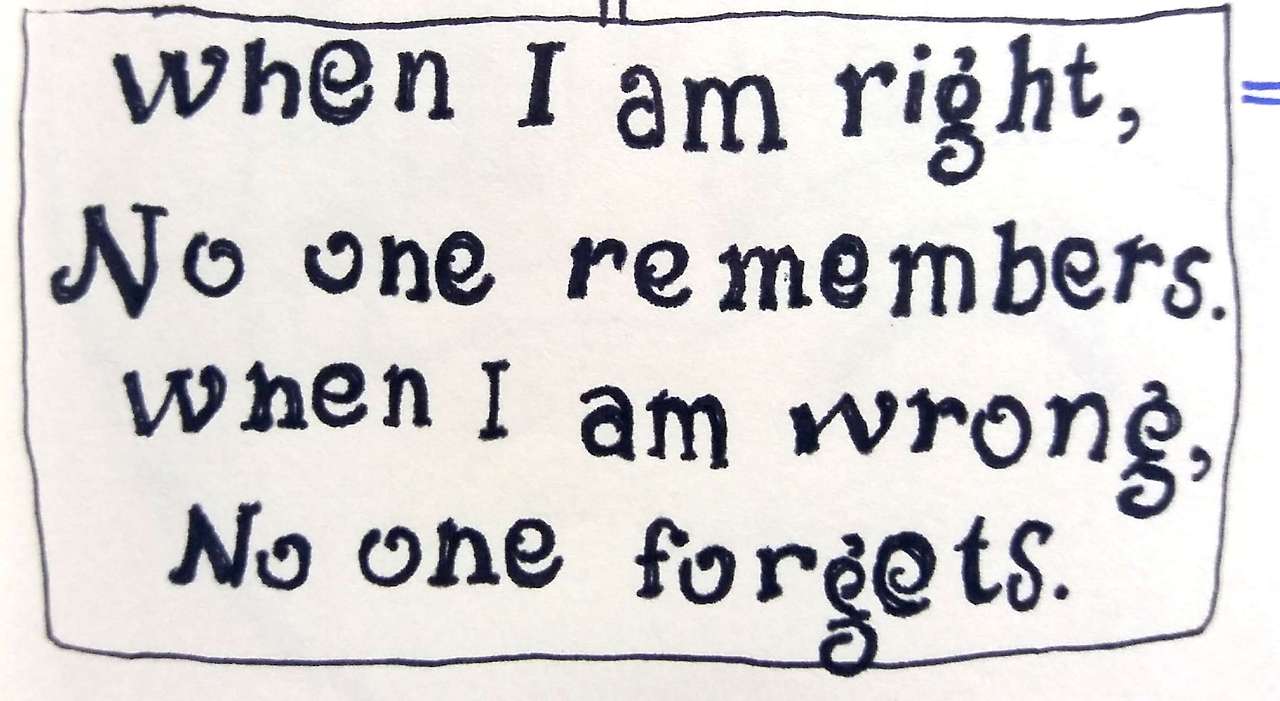 when I am right,
No one remembers.
when I am wrong,
No one forgets.